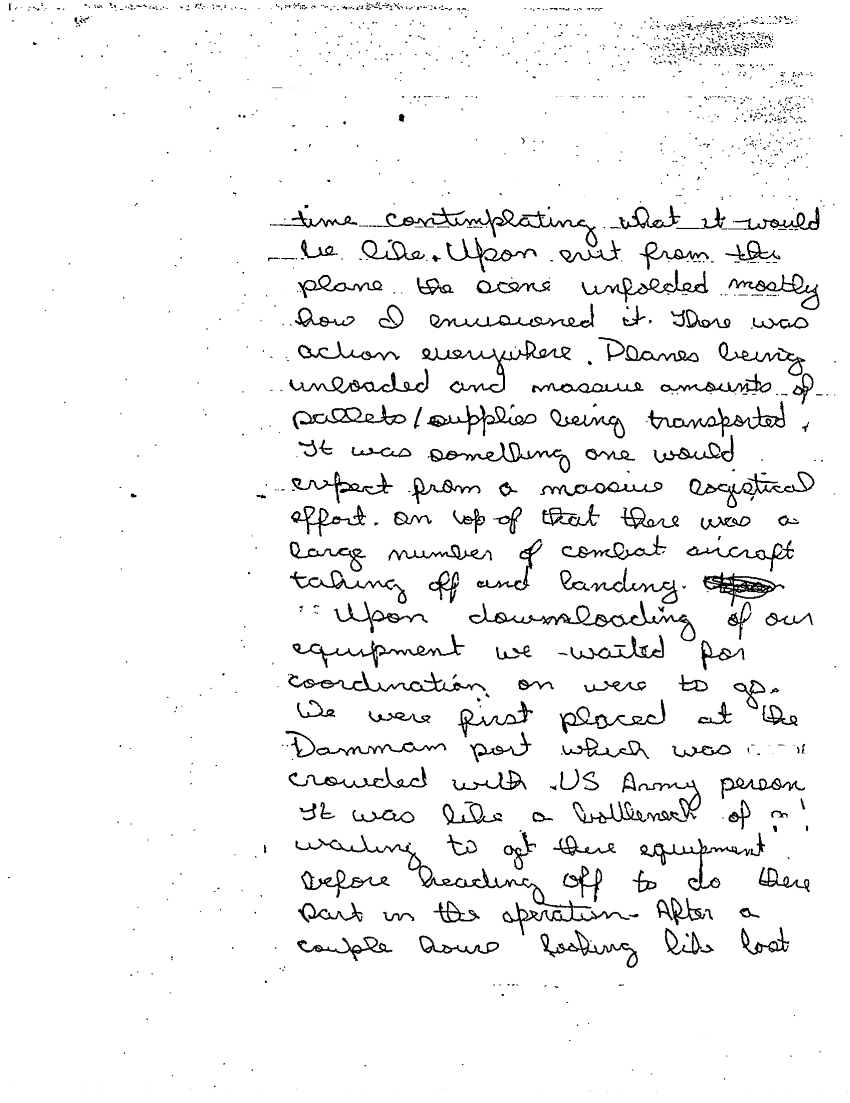 time contimplating what it would
be like. Upon exit from the
plane the scene unfolded mostly
how I envisioned it. There was
action everywhere. Planes being
unloaded and massive amounts of
pallets/supplies being transported.
It was something one would
expect from a massive logistical
effort. On top of that there was a
large number of combat aircraft
taking off and landing.
Upon downloading of our
equipment we waited for
coordination on were to go.
We were first placed at the
Dammam port which was
crowded with US Army person
It was like a bottleneck of
waiting to get there equipment
before heading off to do there
part in the operation. After a
couple hours looking like lost